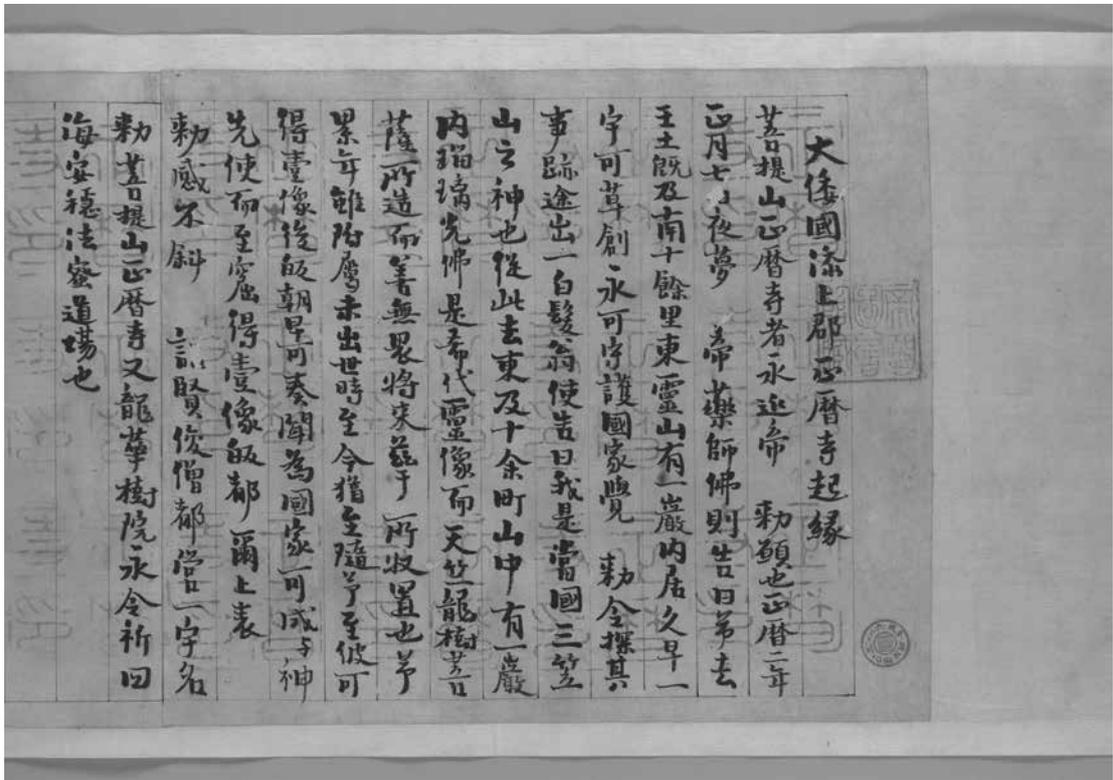 大倭國添上郡正暦寺起縁
菩提山正暦寺者永延帝　勅願也正暦二年
正月七日夜夢　帝藥師佛則告曰弟去
王土既及南十餘里東靈山有一巖内居久早一
宇可草創永可守護國家覺　勅令探其
事跡途出一白髮翁使告曰我是當國三笠
山之神也從此去東及十余町山中有一巖
内瑠璃光佛是希代靈像而天竺龍樹菩
薩所造而善無畏將来茲于所收置也予
累年雖附屬未出世時至今猶全隨予至彼可
得壹像後皈朝早可奏聞為國家可成与神
先使而至窟得壹像皈都爾上表
勅感不斜　詔賢俊僧都営一宇名
勅菩提山正暦寺又龍華樹院永令祈四
海安穩法密道場也